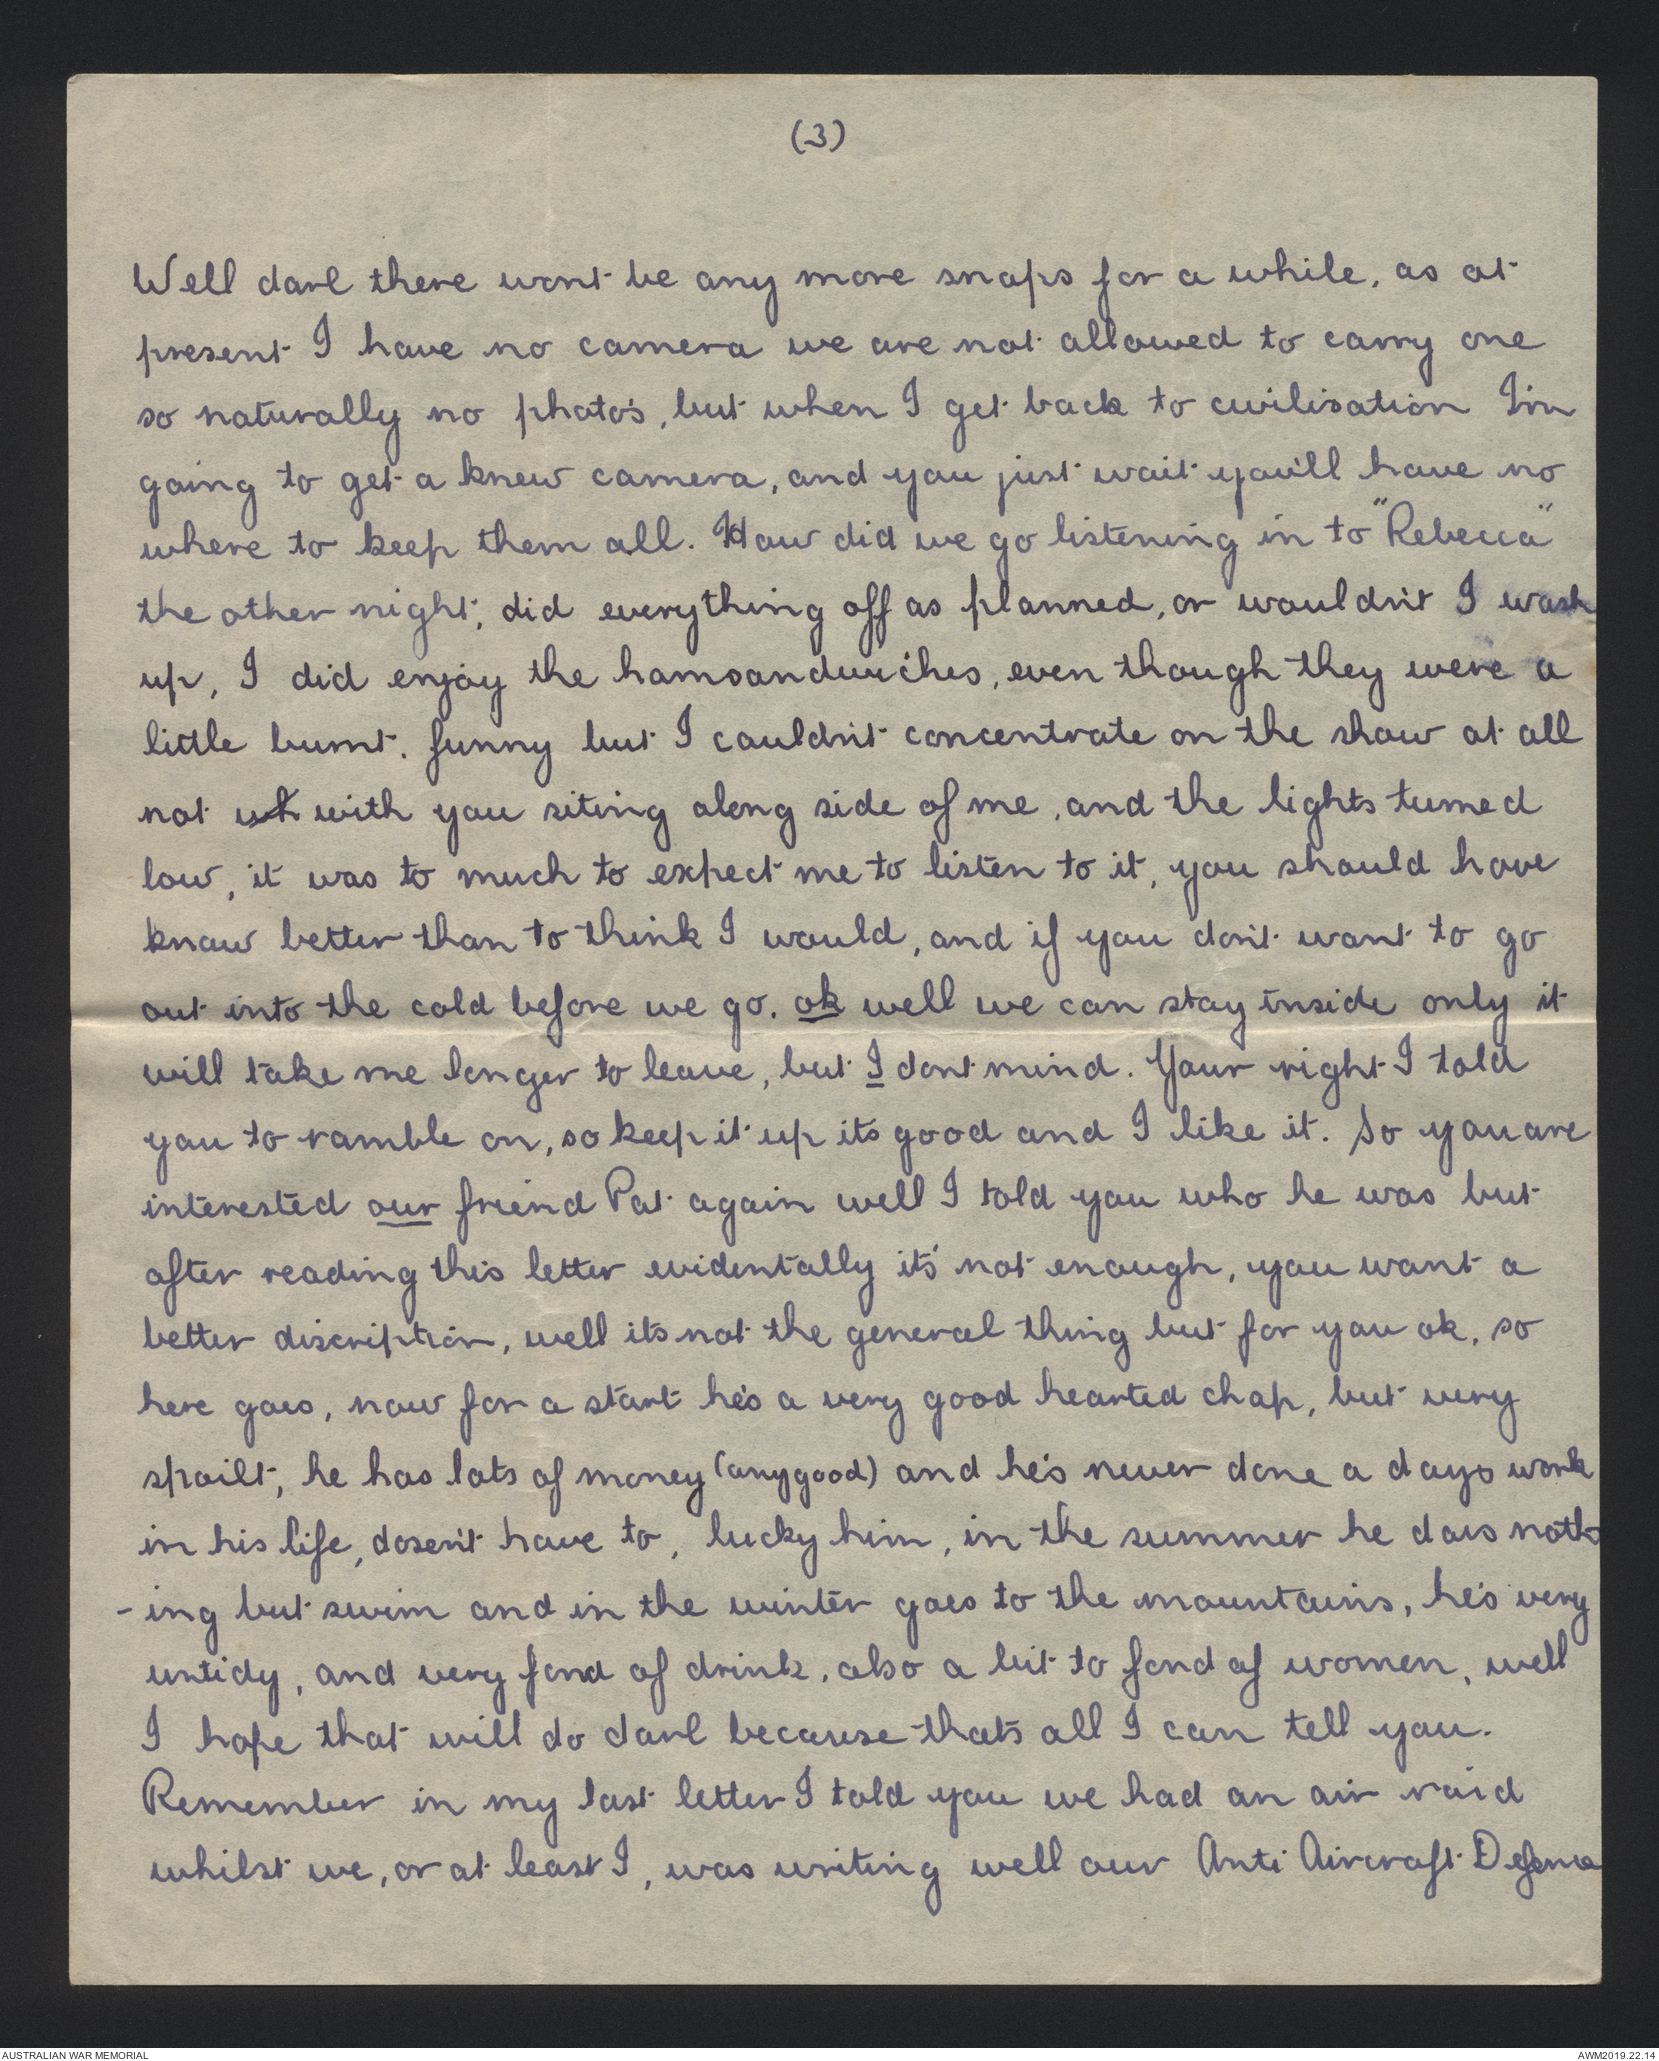 (3)
Well darl there wont be any more snaps for a while, as at
present I have no camera we are not allowed to carry one
so naturally no photo's, but when I get back to civilisation I'm
going to get a knew camera, and you just wait you'll have no
where to keep them all. How did we go listening in to "Rebecca"
the other night, did everything off as planned, or wouldn't I wash
up, I did enjoy the hamsandwiches, even though they were a
little burnt. funny but I couldn't concentrate on the show at all
not wh with you siting along side of me, and the lights turned
low, it was to much to expect me to listen to it, you should have
know better than to think I would, and if you don't want to go
out into the cold before we go. ok well we can stay inside only it
will take me longer to leave, but I dont mind. Your right I told
you to ramble on, so keep it up its good and I like it. So you are
interested our friend Pat again well I told you who he was but
after reading this letter evidentally it's not enough, you want a
better discription, well its not the general thing but for you ok, so
here goes, now for a start he's a very good hearted chap, but very
spoilt, he has lots of money (anygood) and he's never done a days work
in his life, dosen't have to, lucky him, in the summer he does noth
-ing but swim and in the winter goes to the mountains, he's very
untidy, and very fond of drink, also a bit to fond of women, well
I hope that will do darl because thats all I can tell you.
Remember in my last letter I told you we had an air raid
whilst we, or at least I, was writing well our Anti Aircraft Defence
AUSTRALIAN WAR MEMORIAL
AWM2019.22.14